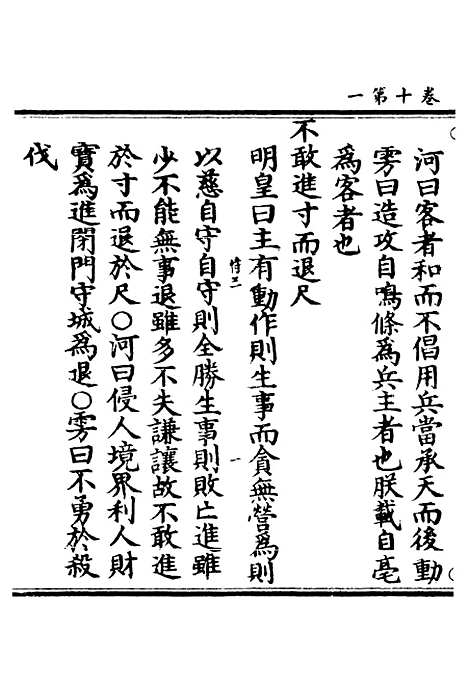 卷十第一
河曰客者和而不倡用兵當承天而後動
雱曰造攻自鳴條爲兵主者也朕載自亳
爲客者也
不敢進寸而退尺
明皇曰主有動作則生事而貪無營爲則
以慈自守自守則全勝生事則敗亡進雖
少不能無事退雖多不失謙讓故不敢進
於寸而退於尺○河曰侵人境界利人財
寳爲進閉門守城爲退○雱曰不勇於殺
伐